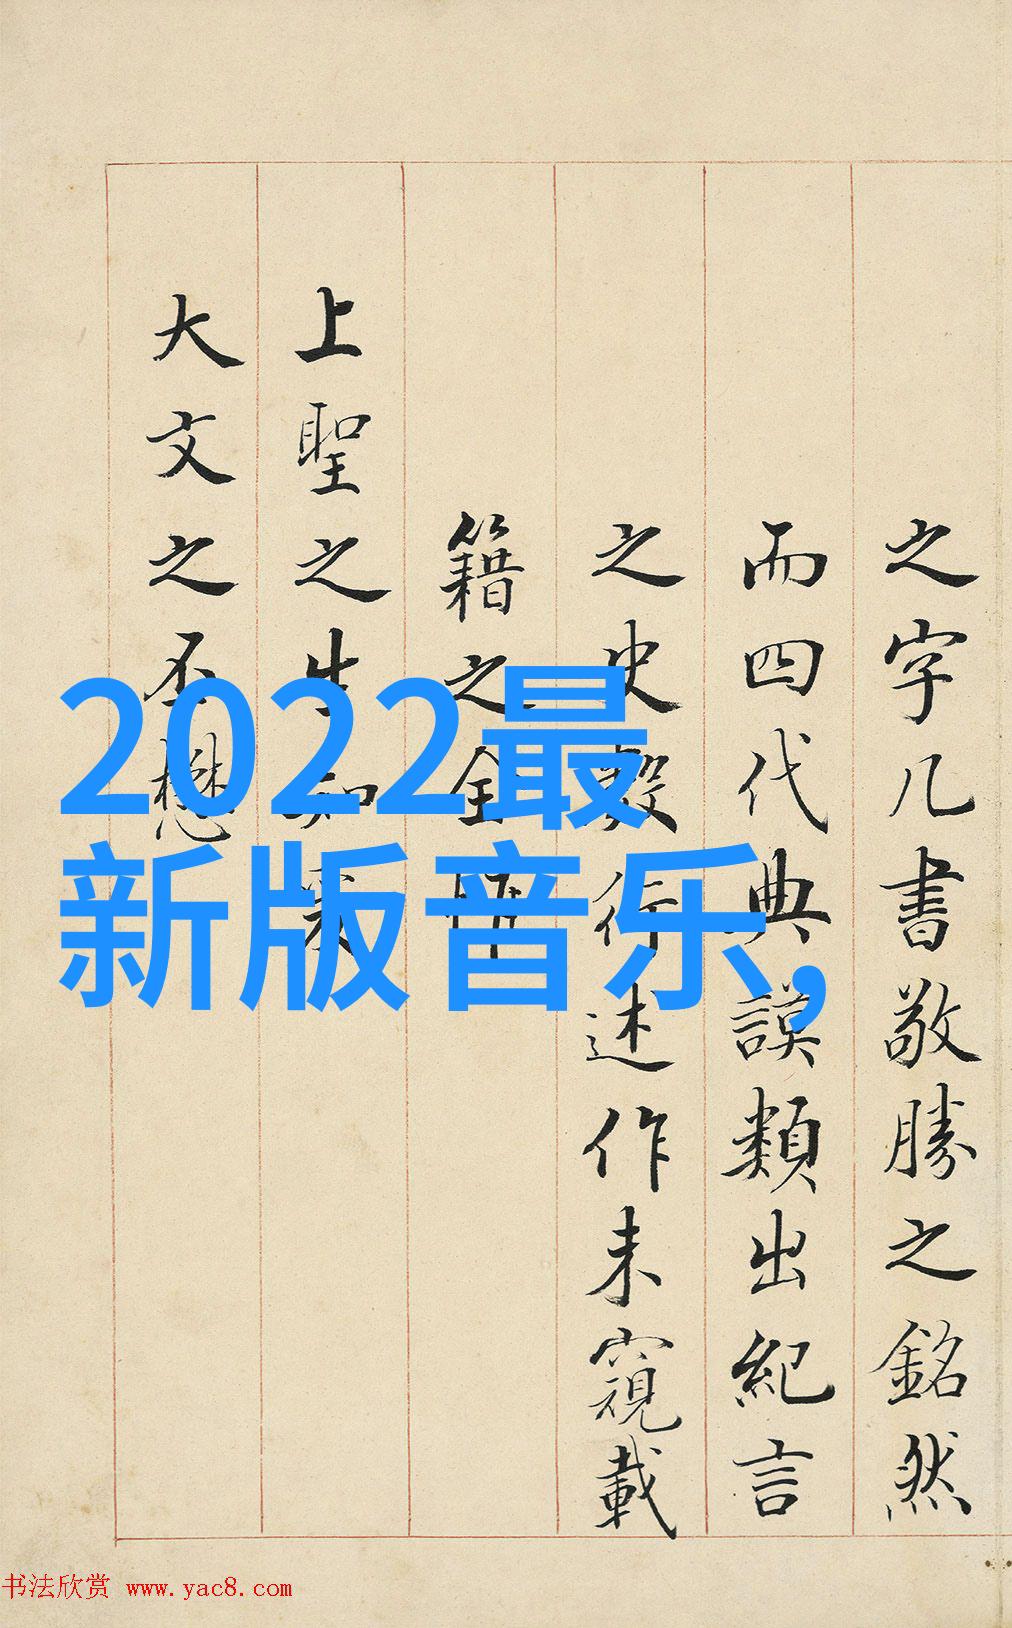 之字几書敬勝之銘然
而四代典謨類出紀言
之史毅行述作未窺載
籍之全
上聖之生知
大文之丕懋
2022最
新版音乐,
书法欣赏 www.yac8.com